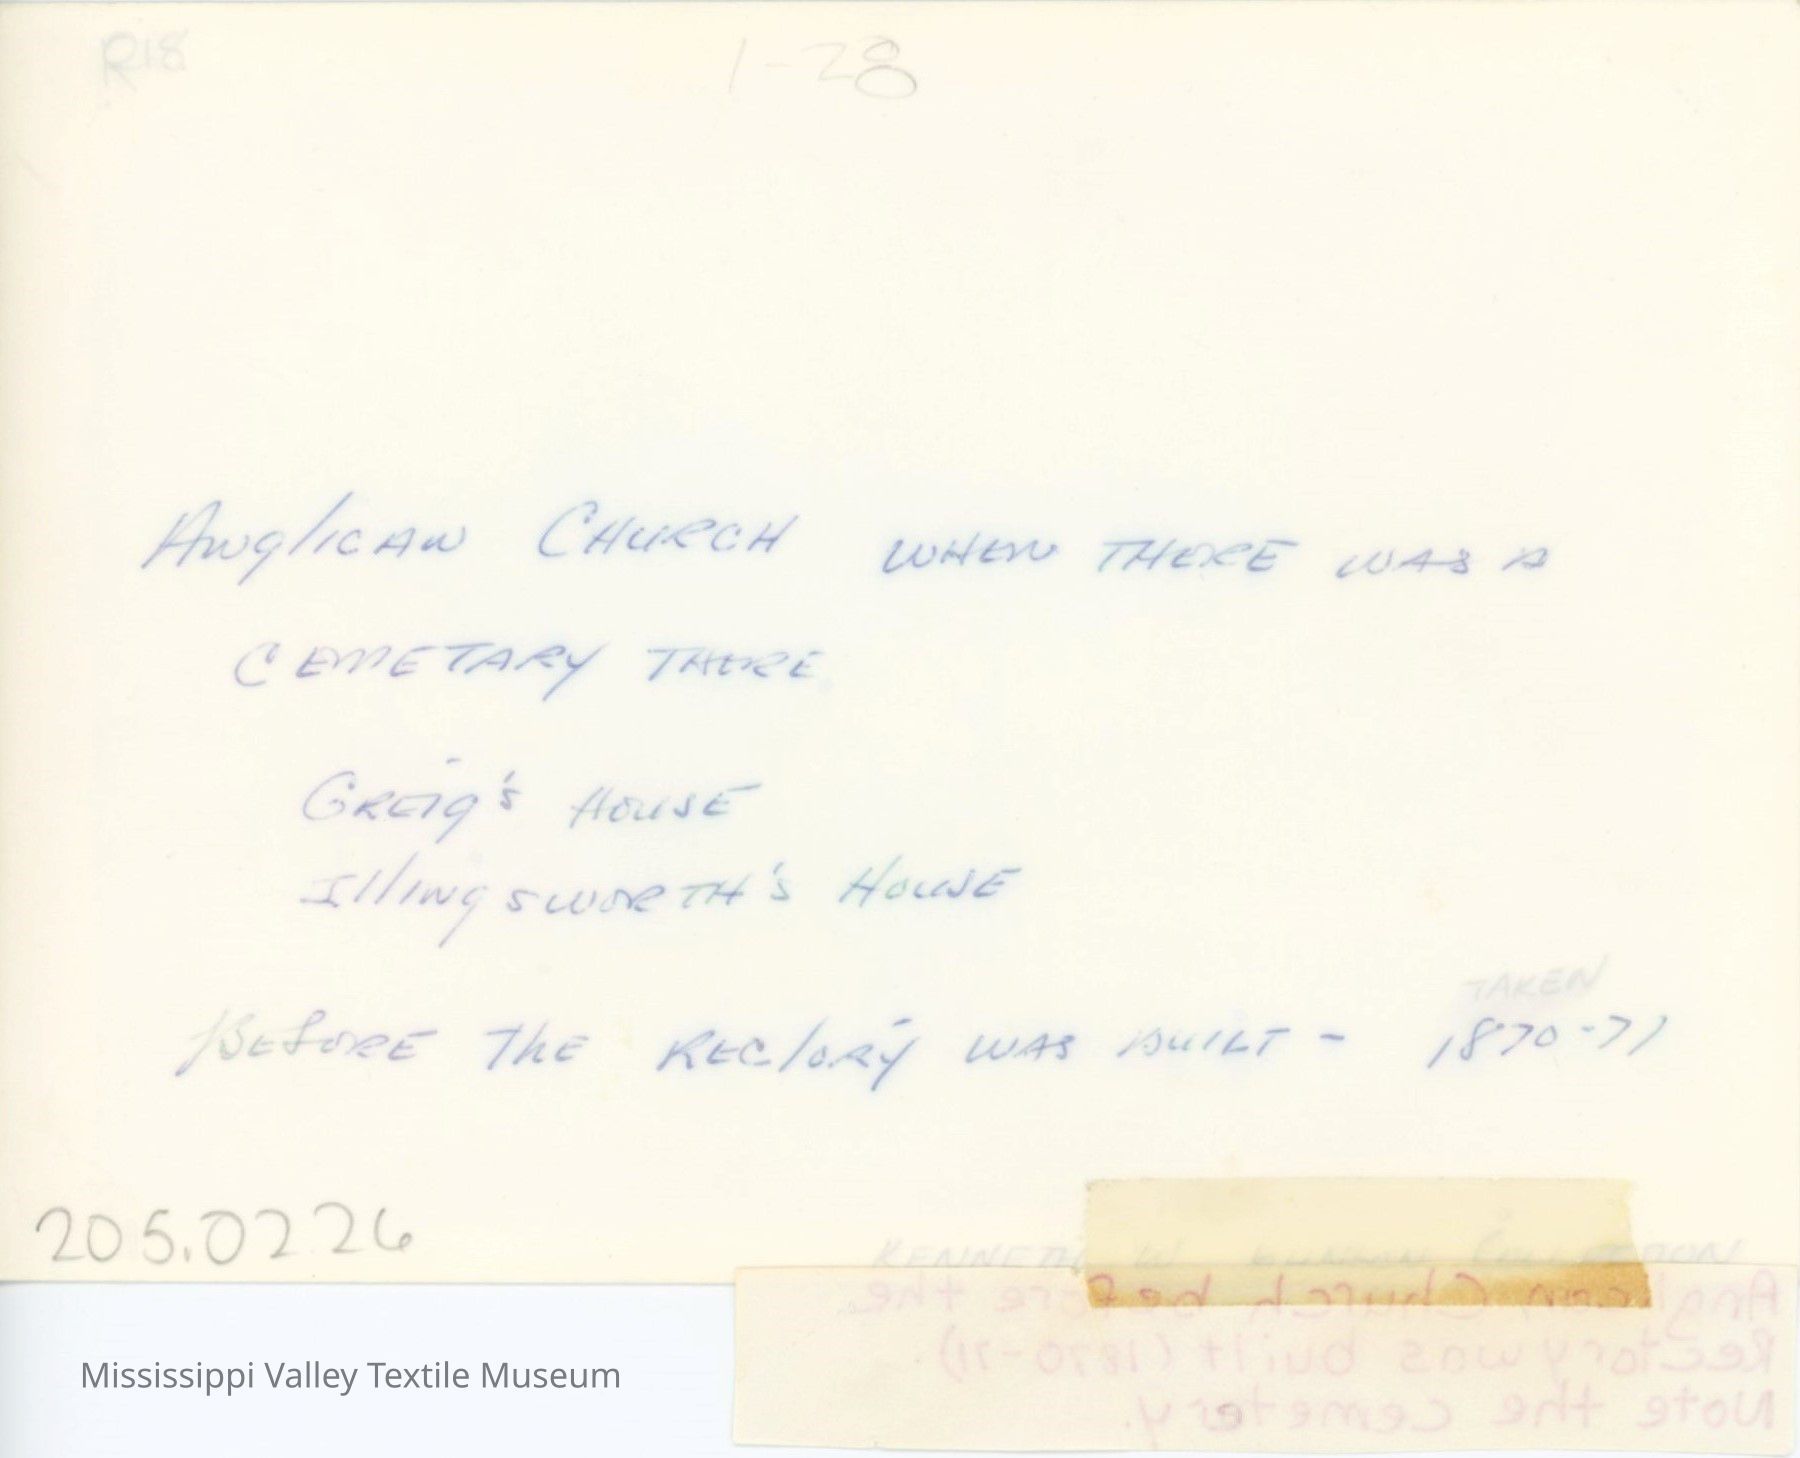 R18
1-28
Anglican Church when there was a
Cemetary there
Greig's House
Illingsworth's House
TAKEN
Before the Rectory was built - 1870-71
205.0226
KENNETH W COLLECTION
Anglican Church before the
Rectory was built (1870-71).
Note the cemetery.
Mississippi Valley Textile Museum